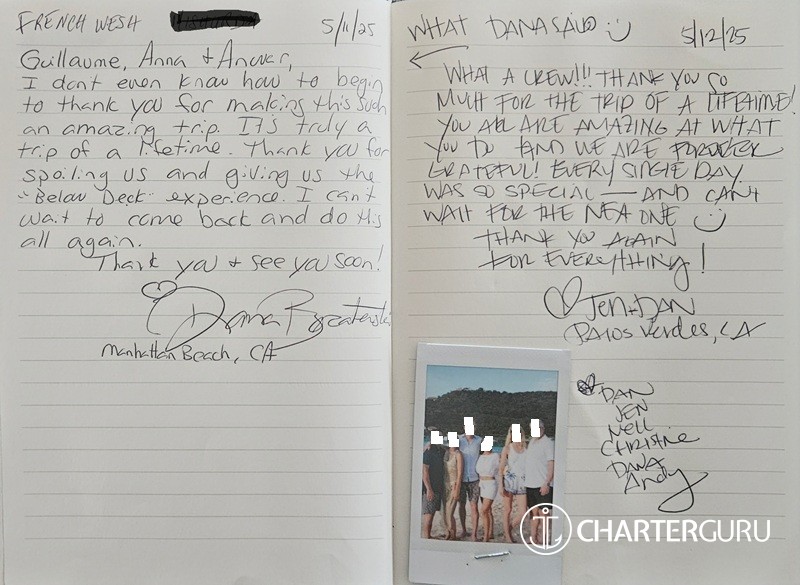 FRENCH WESH
5/11/25
Guillaume, Anna + Anouar,
I don't even know how to begin
to thank you for making this such
an amazing trip. It's truly a
trip of a lifetime. Thank you for
spoiling us and giving us the
"Below Deck" experience. I can't
wait to come back and do this
all again.
Thank you + see you soon!
Dana
Manhattan Beach, CA
WHAT DANA SAID
5/12/25
WHAT A CREW!!! THANK YOU SO
MUCH FOR THE TRIP OF A LIFETIME!
YOU ALL ARE AMAZING AT WHAT
YOU DO AND WE ARE FOREVER
GRATEFUL! EVERY SINGLE DAY
WAS SO SPECIAL — AND CAN'T
WAIT FOR THE NEXT ONE
THANK YOU AGAIN
FOR EVERYTHING!
JEN + DAN
PALOS VERDES, CA
DAN
JEN
NELL
CHRISTIE
DANA
Andy
CHARTERGURU